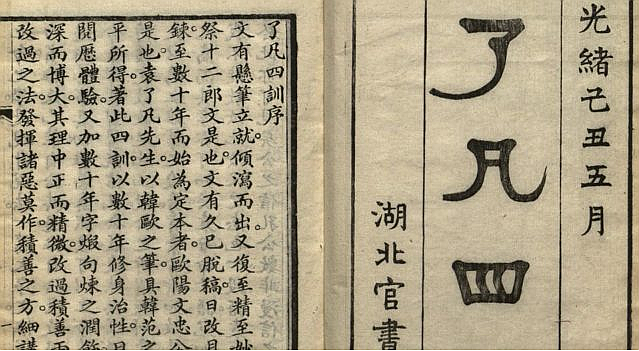 光緒己丑五月
了凡四
湖北官書
了凡四訓序
文有懸筆立就。傾瀉而出。又復至精至妙
祭十二郎文是也。文有久已脫稿。日改月
鍊至數十年而始為定本者。歐陽文忠公
是也。袁了凡先生以韓歐之筆具韓范之
平所得。著此四訓。以數十年修身治性。日
閱歷體驗。又加數十年字煅句煉之潤
深而博大。其理中正而精微。改過積善
改過之法。發揮諸惡莫作。積善之方。細講